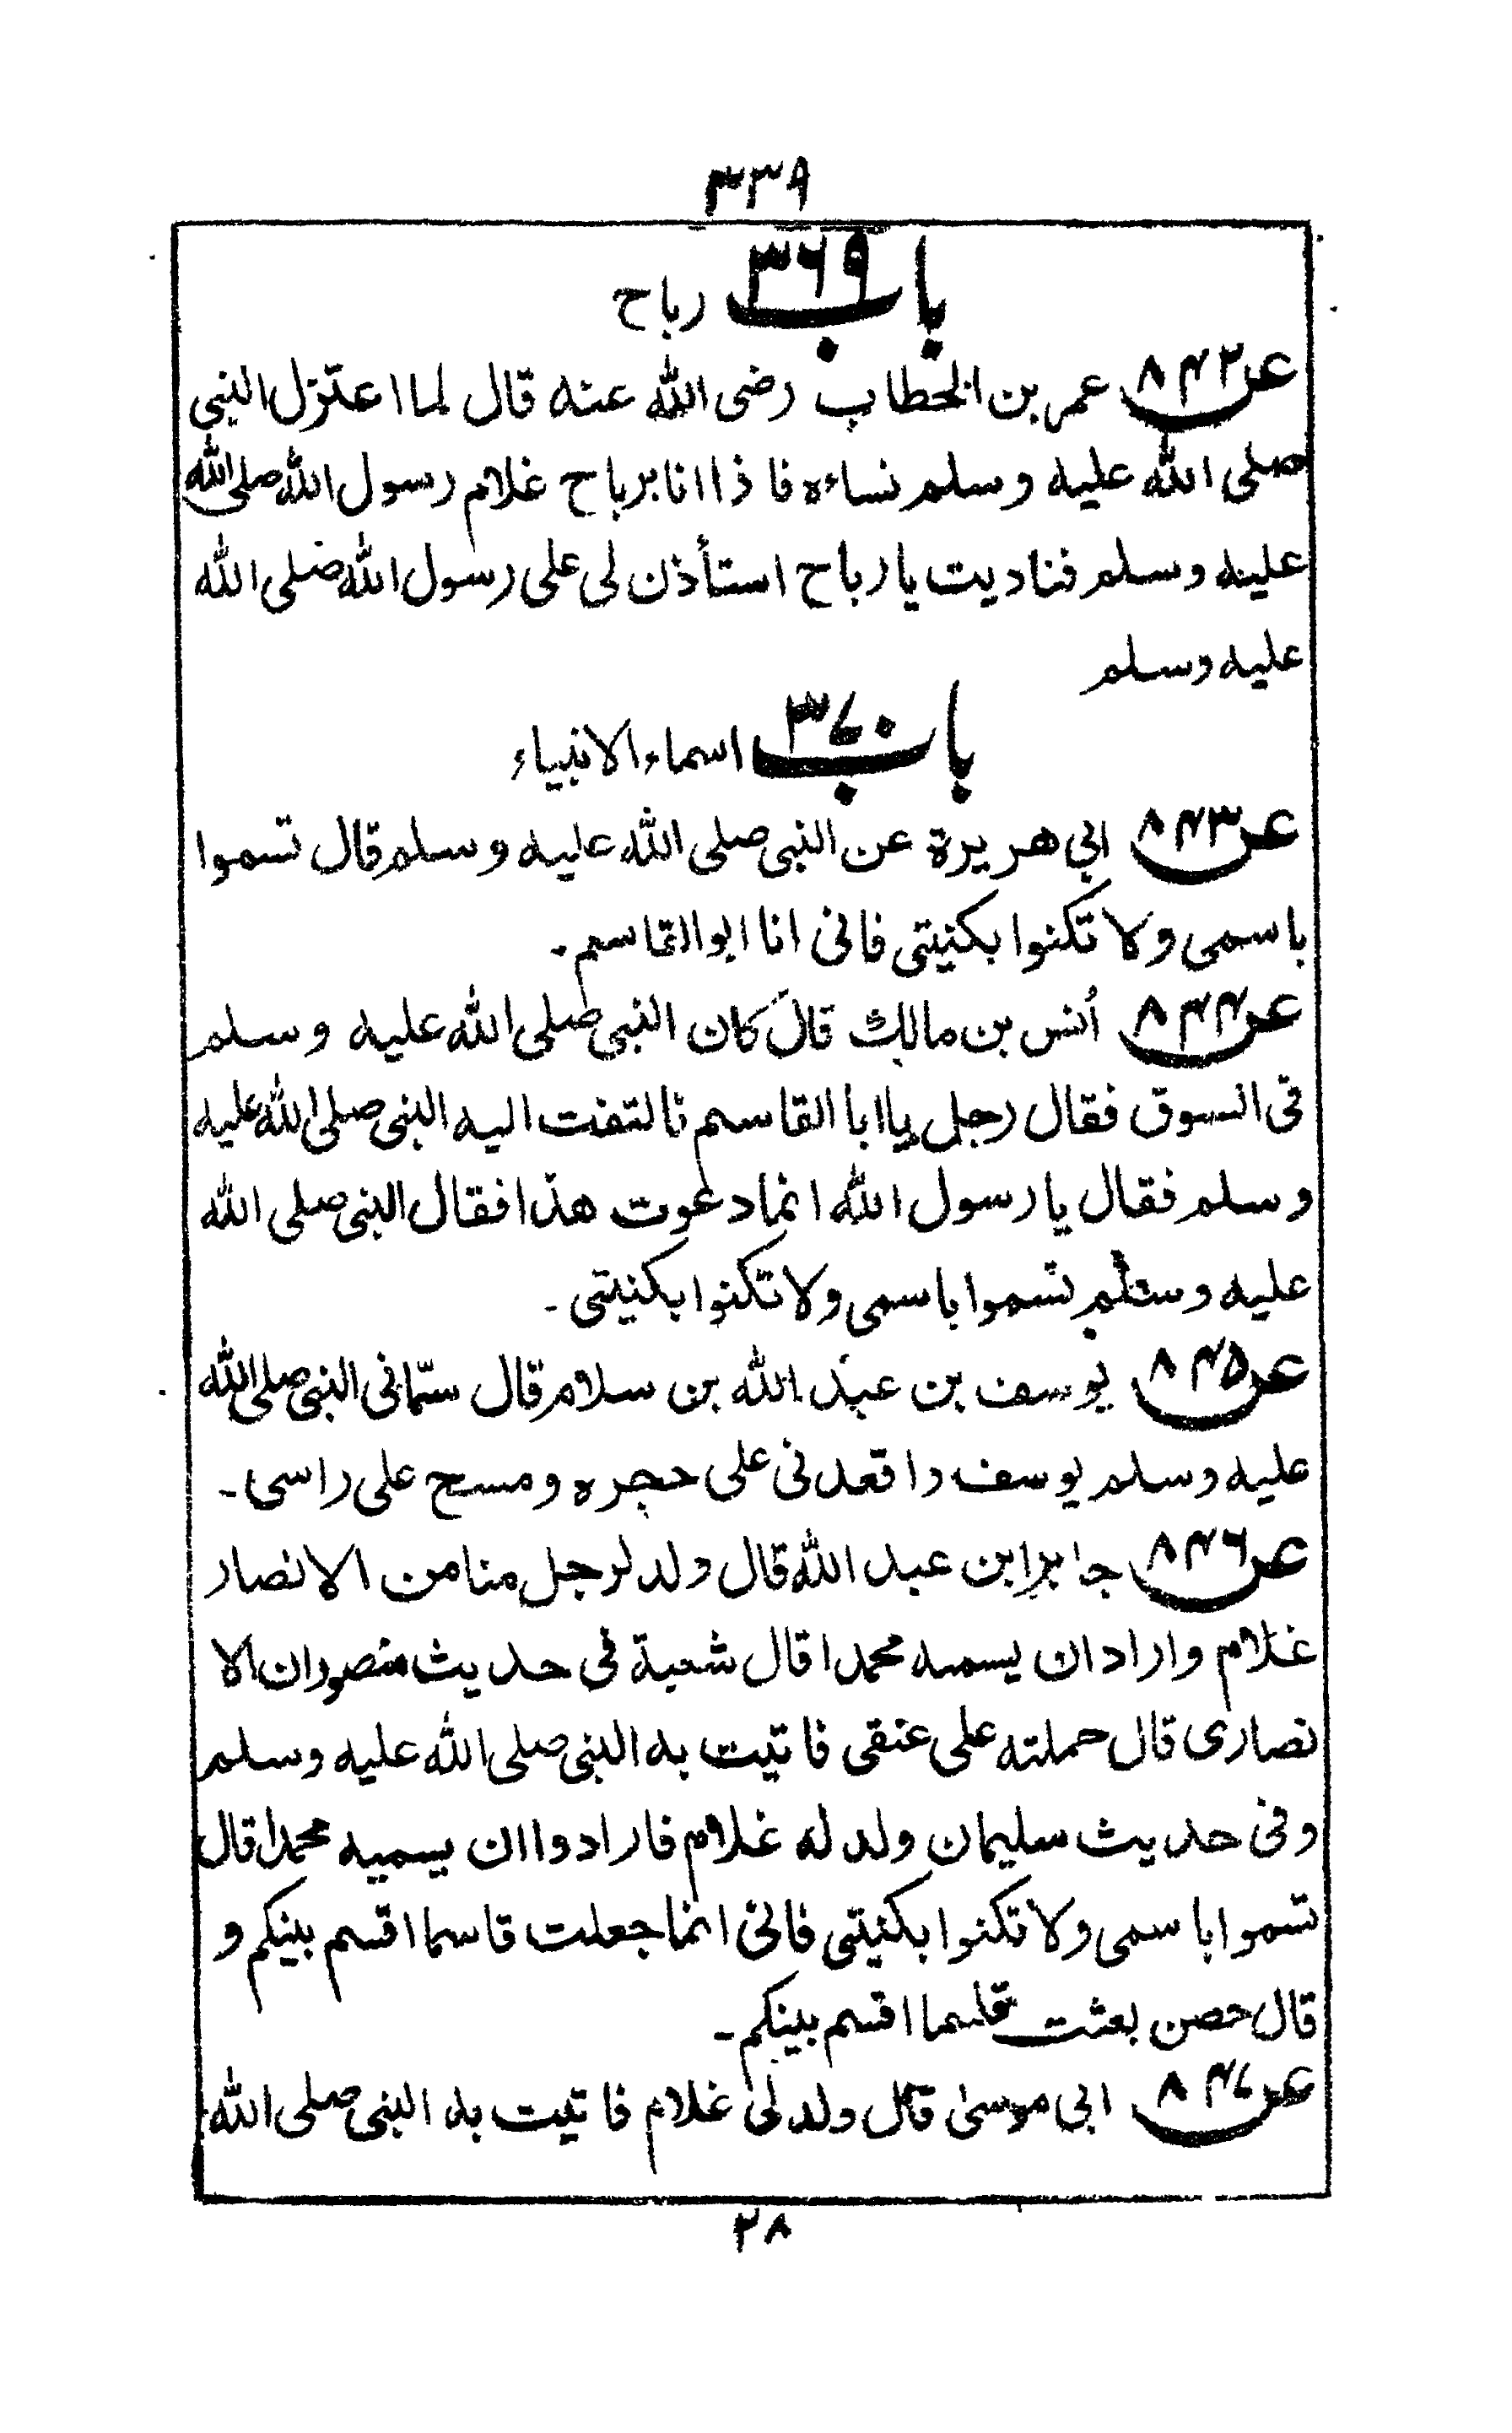 ٣٣٨
باب ٣٦٩ رباح
عن ٨٤٢ عمر بن الخطاب رضى الله عنه قال لما اعتزل النبى
صلى الله عليه وسلم نساءه فاذا انا برباح غلام رسول الله صلى الله
عليه وسلم فناديت يا رباح استأذن لى على رسول الله صلى الله
عليه وسلم
باب ٣٧٠ اسماء الانبياء
عن ٨٤٣ ابى هريرة عن النبى صلى الله عليه وسلم قال تسموا
باسمى ولا تكنوا بكنيتى فانى انا ابو القاسم ۔
عن ٨٤٤ أنس بن مالك قال كان النبى صلى الله عليه وسلم
فى السوق فقال رجل يا ابا القاسم فالتفت اليه النبى صلى الله عليه
وسلم فقال يا رسول الله انما دعوت هذا فقال النبى صلى الله
عليه وسلم تسموا باسمى ولا تكنوا بكنيتى ۔
عن ٨٤٥ يوسف بن عبد الله بن سلام قال سمّانى النبى صلى الله
عليه وسلم يوسف واقعدنى على حجره ومسح على راسى ۔
عن ٨٤٦ جابر ابن عبد الله قال ولد لرجل منا من الانصار
غلام واراد ان يسمه محمدا قال شعبة فى حديث منصور ان الا
نصارى قال حملته على عنقى فاتيت به النبى صلى الله عليه وسلم
وفى حديث سليمان ولد له غلام فارادوا ان يسميه محمدا قال
تسموا باسمى ولا تكنوا بكنيتى فانى انما جعلت قاسما اقسم بينكم و
قال حصن بعثت قاسما اقسم بينكم ۔
عن ٨٤٧ ابى موسىٰ قال ولد لى غلام فاتيت به النبى صلى الله
٢٨